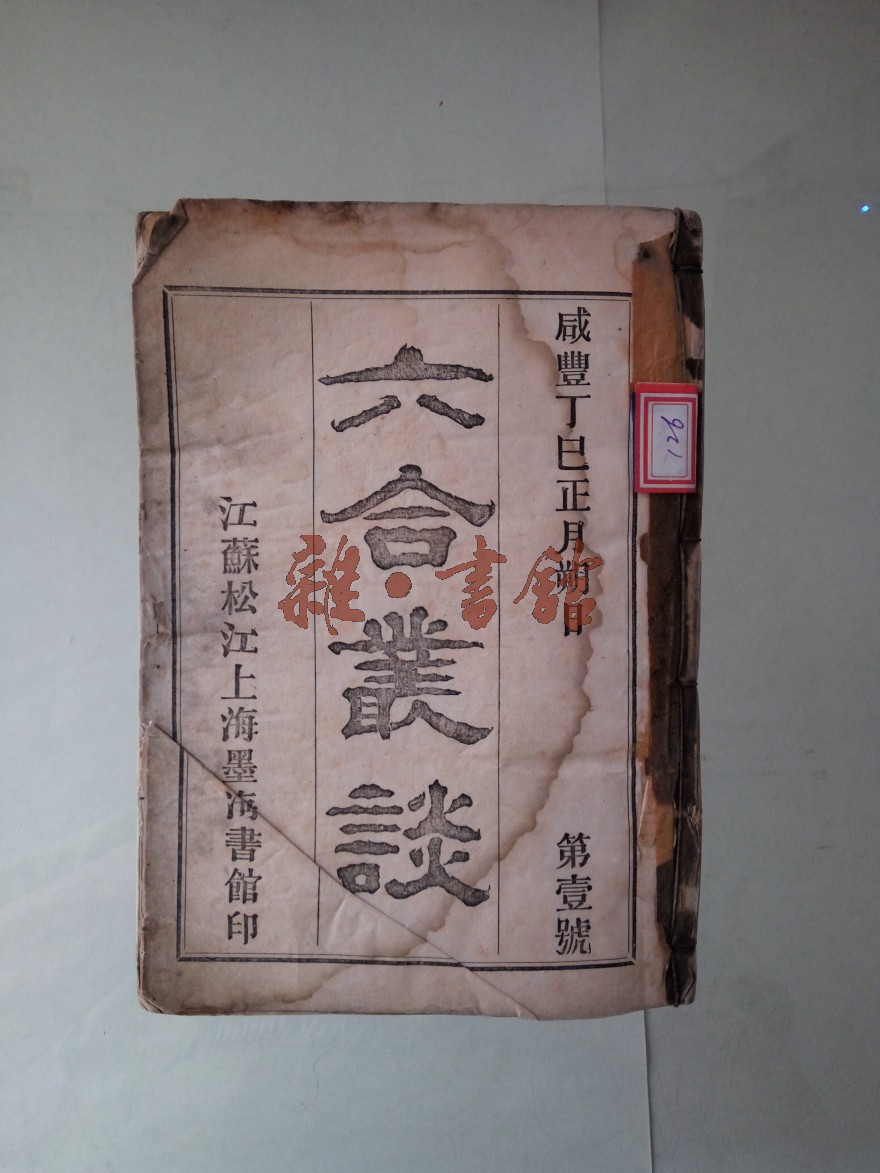 咸豐丁巳正月朔日
第壹號
六合叢談
江蘇松江上海墨海書館印
126
雜·書館